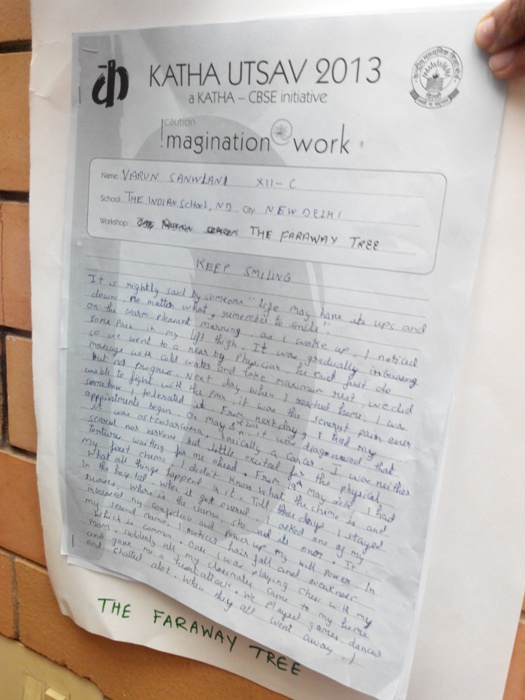 KATHA UTSAV 2013
a KATHA – CBSE initiative
caution
!magination@work
Name VARUN SANWLANI XII-C
School THE INDIAN School, ND City NEW DELHI
Workshop THE FARAWAY TREE
KEEP SMILING
It is rightly said by someone "Life may have its ups and
downs, no matter what, remember to smile"
On the warm pleasant morning, as I wake up, I noticed
some pain in my left thigh. It was gradually increasing
so we went to a near by Physician. He said just do
massage with cold water and take maximum rest. We did
but no progress. Next day when I reached home, I was
unable to fight with the pain, it was the severest pain ever
somehow I tolerated it. From next day, I had my
appointments began. On may it was diagonased that
it was osteosarcoma, basically a cancer. I was neither
scared nor nervous but little excited for the physical
torture waiting for me ahead. From 19th May, 2012 I had
my first chemo, I didn't know what the chemo is and
what all things append in it. Till three days I stayed
in the hospital. When it got over I asked one of my
nurses, where is the chemo, she said its over. It
increased my confidence and power up my will power. In
my second chemo, I noticed hair fall and weakness
which is common. Once I was playing chess with my
mom, suddenly all my classmates came to my home
and gave me a . We played games, danced
and chatted alot. When they all went away, I
THE FARAWAY TREE